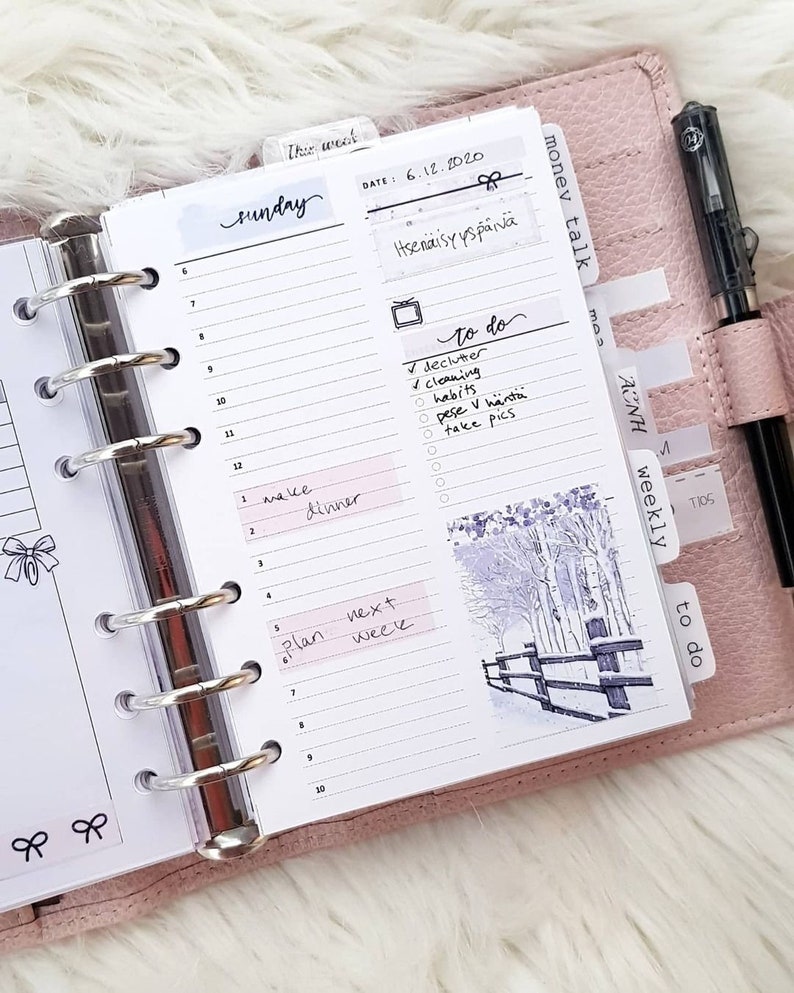 This week
sunday
6
7
8
9
10
11
12
1 make
2 dinner
3
4
5 plan next
6 week
7
8
9
10
DATE: 6.12.2020
Itsenäisyyspäivä
to do
✓ declutter
✓ cleaning
habits
pese V häntä
take pics
money talk
ACNH
weekly
to do
TIOS
04